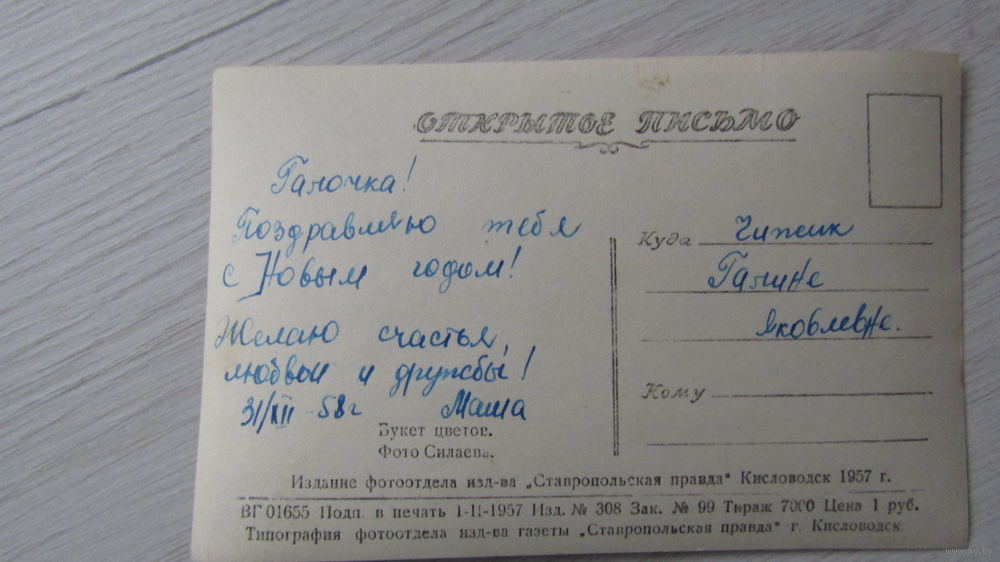 ОТКРЫТОЕ ПИСЬМО
Галочка!
Поздравляю тебя
с Новым годом!
Желаю счастья,
любви и дружбы!
31/XII-58г Маша
Букет цветов.
Фото Силаева.
Куда Чипсик
Галине
Яковлевне.
Кому
Издание фотоотдела изд-ва „Ставропольская правда" Кисловодск 1957 г.
ВГ 01655 Подп. в печать 1-II-1957 Изд. № 308 Зак. № 99 Тираж 7000 Цена 1 руб.
Типография фотоотдела изд-ва газеты „Ставропольская правда" г. Кисловодск.
www.ay.by